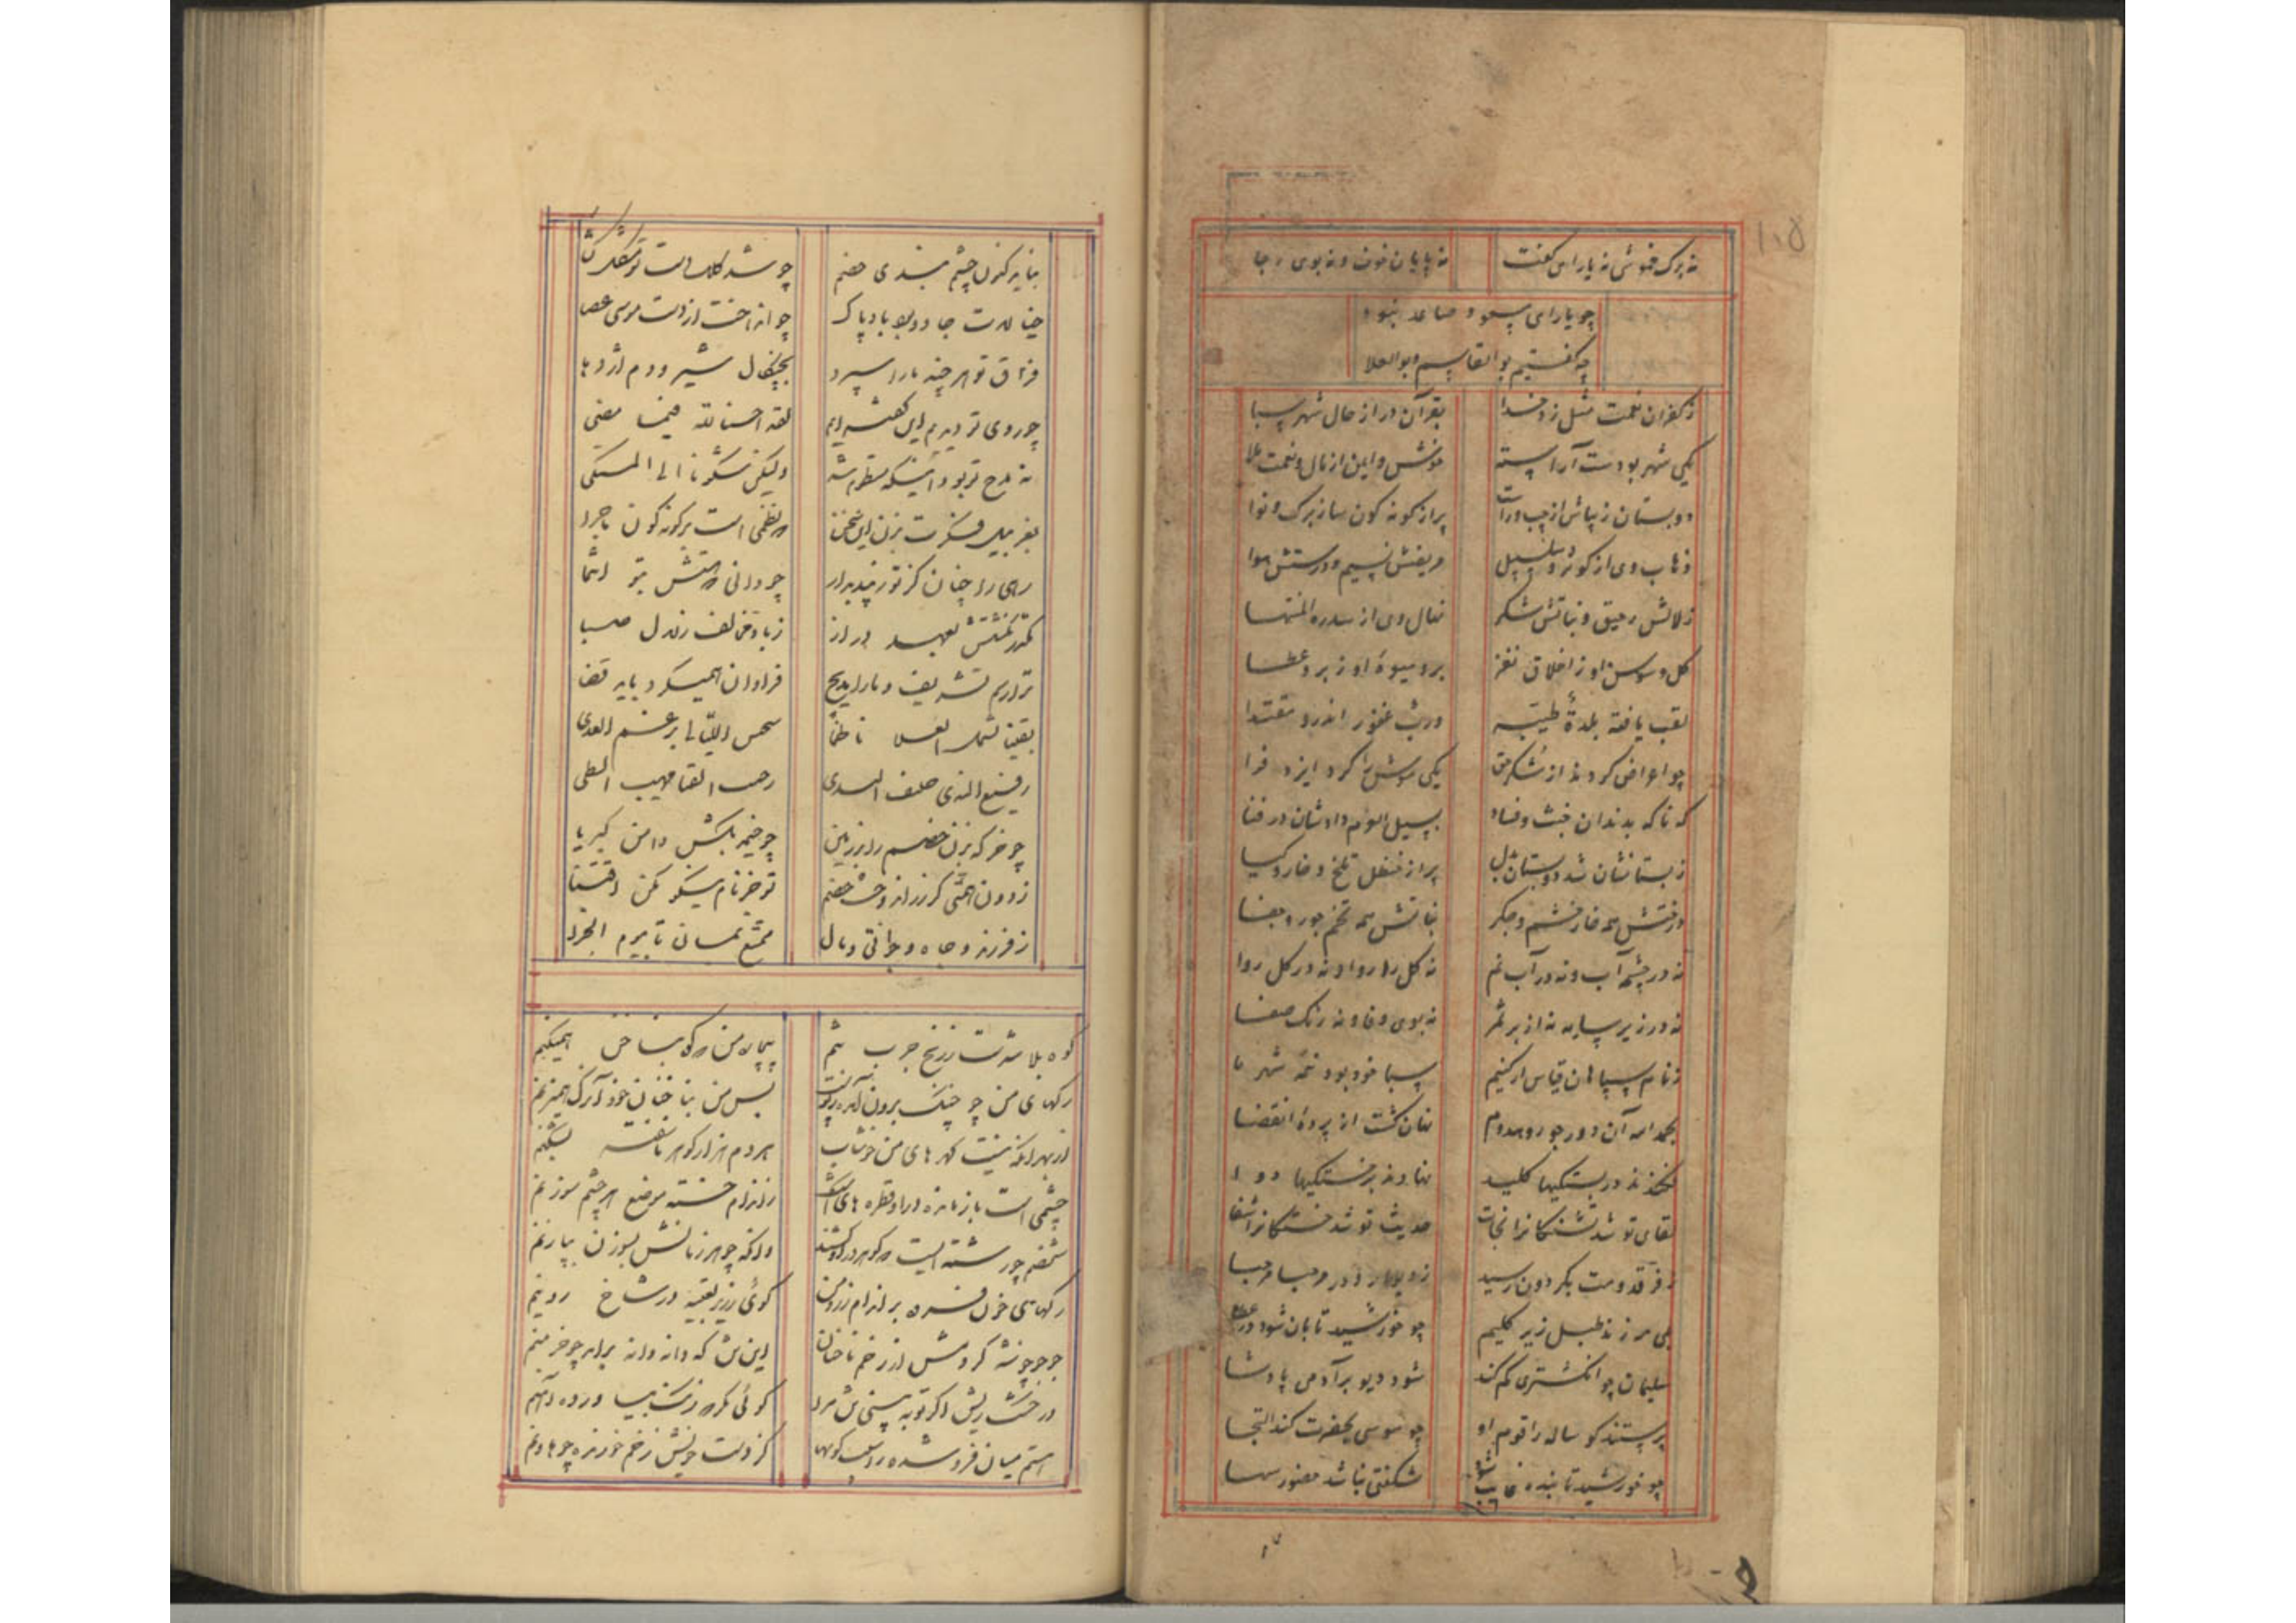 ۱۰۵
نه برک خموشی نه یارای گفت نه پایان خوف و نه بوی رجا
چو یارای پیمود و صاعد نبود
چه گفتیم بو القاسم و بوالعلا
ز کفران نعمت مثل زد خدا بقرآن در از حال شهر سبا
یکی شهر بودست آراسته خوش و ایمن از مال و نعمت ملا
دو بستان زیباش از چپ و راست پر از کونه کون ساز برک و نوا
ذهاب وی از کوثر و سلسبیل نسیم و هوا
زلالش رحیق و نباتش شکر نهال وی از سدره المنتها
کل و سوسن او ز اخلاق نغز بر و میوهٔ او ز بر و عطا
لقب یافته بلدةٔ طیبه و رب غفور اندرو مقتدا
چو اعراض کردند از شکر حق یکی موش را کرد ایزد فرا
که ناکه بدندان خبث و فساد بسیل العرم دادشان در فنا
ز بستانشان شد دو بستان بدل پر از حنظل تلخ و خار و کیا
درختش همه خار خشم و جکر نباتش همه تخم جور و جفا
نه در چشمه آب و نه در آب نم نه کل را روا و نه در کل روا
نه در زیر سایه نه از بر ثمر نه بوی وفا و نه رنک صفا
ز نام سپاهان قیاس ار کنیم سبا خود بود نیمه شهر ما
بحمد الله آن دور جور و همدوم نهان کشت از پردهٔ انقضا
در بستکیها کلید نهادند بر خستکیها دوا
لقای تو شد تشنکانرا نجات حدیث تو شد خستکانرا شفا
ز فر قدومت بکردون رسید ز دیوار و در مرحبا مرحبا
همی مرزند طبل زیر کلیم چو خورشید تابان شود در غطا
سلیمان چو انکشتری کم کند شود دیو بر آدمی پادشا
پرستند کوساله را قوم او چو موسی بحضرت کند التجا
چو خورشید تابنده غایب شود شکفتی نباشد حضور سها
نباید کنون چشم بندی خصم چو شد کلک دست تو مشکل کشا
خیالات جادو بود باد پاک چو انداخت از دست موسی عصا
فراق تو هر چند ما را سپرد بچنکال شیر و دم اژدها
چو روی تو دیدیم این کفته ایم لقد احسن الله فیما مضی
نه مدح تو بود اینکه منظوم شد ولیکن شکونا الی المشتکی
بغربیل فکرت بزن این سخن که نظمی است برکونه کون ماجرا
رهی را چنان کز تو زیبد بدار چو دانی که هستش بتو انتما
مکدر نکشتش بعهد دراز ز باد مخالف زلال صفا
تو دارم تشریف و ما را مدیح فراوان همیکرد باید قضا
بقیتا لشمل العلا ناظما سجیس اللیالی برغم العدی
رفیع الذری حلیف الندی رحیب الفنا مهیب السطی
چو خرکه بزن خصم را بر زمین چو خیمه بکش دامن کبریا
ز دون همتی کر زر اندوخت خصم تو جز نام نیکو مکن اقتنا
ز فرزند و جاه و جوانی و مال ممتع بمان تا بیوم الجزا
کوه بلا شدست ز رنج جرب تنم بیچاره من که کوه بناخن همیکنم
رکهای من چو چنک برون آمد ز پوست پس من بناخنان خود آن رک همیزنم
از بهر آنکه نیست کهرهای من خوشاب هر دم هزار کوهر ناسفته بشکنم
چشمی است باز مانده درو قطره های اشک ز اندام خسته موضع هر چشم سوزنم
شخصم چو رشته ایست که کوهر درو کشند وانکه چو هر زمانش بسوزن بیازنم
رکهای خون فسرده بر اندام زرد من کوئی زریر تعبیه در شاخ روینم
جو جو چو خوشه کردمش از زخم ناخنان این تن که دانه دانه برآمد چو خرمنم
در خشت ریش اکر تو ببینی تن مرا کوئی مکر که زنک بیاورده آهنم
هستم میان فرو شده در آب کرم کز دست خویش زخم خورنده چو هاونم